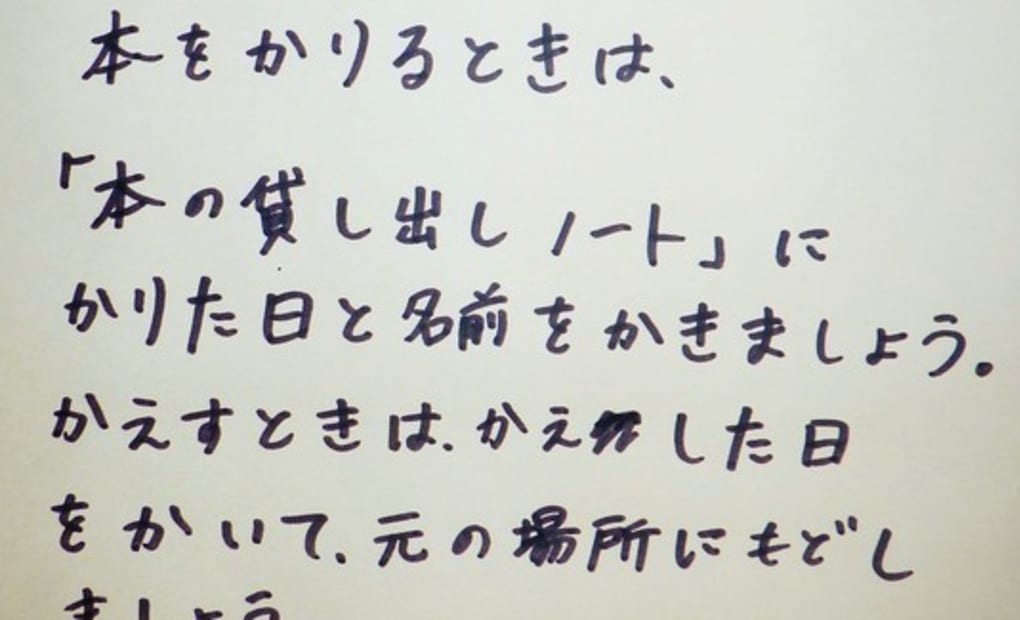 本をかりるときは、
「本の貸し出しノート」に
かりた日と名前をかきましょう。
かえすときは、かえした日
をかいて、元の場所にもどし
ましょう